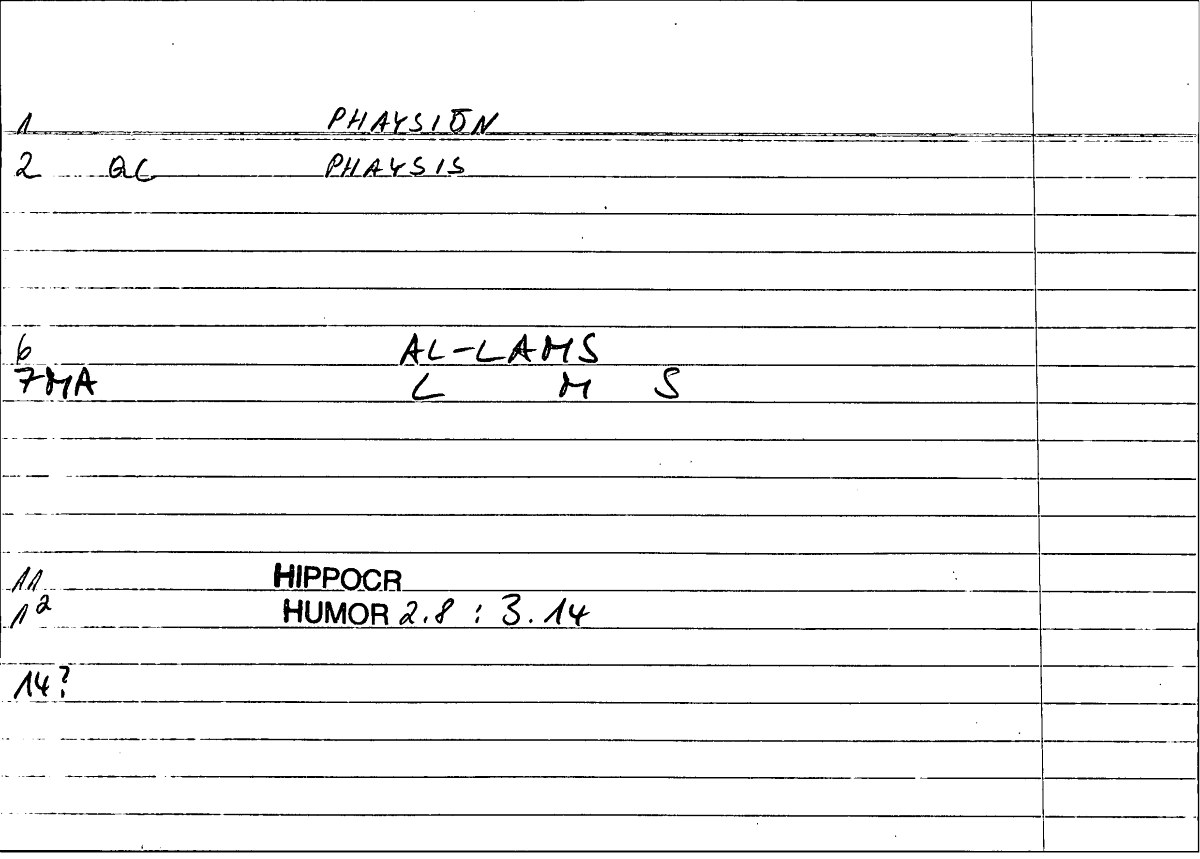 1 PHAYSIŌN
2 QC PHAYSIS
6 AL-LAMS
7MA L M S
11 HIPPOCR
12 HUMOR 2.8 : 3.14
14?